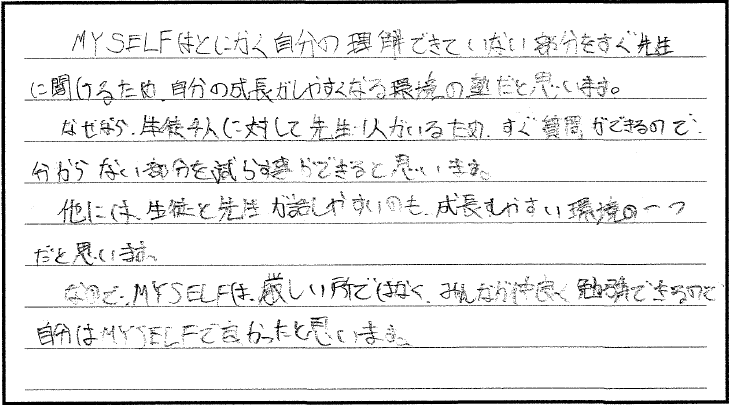 MYSELFはとにかく自分の理解できていない部分をすぐ先生
に聞けるため、自分の成長がしやすくなる環境の塾だと思います。
なぜなら、生徒4人に対して先生1人がいるため、すぐ質問ができるので、
分からない部分を減らす事ができると思います。
他には、生徒と先生が話しやすいのも、成長しやすい環境の一つ
だと思います。
なので、MYSELFは、厳しい所ではなく、みんなが仲良く勉強できるので
自分はMYSELFで良かったと思います。